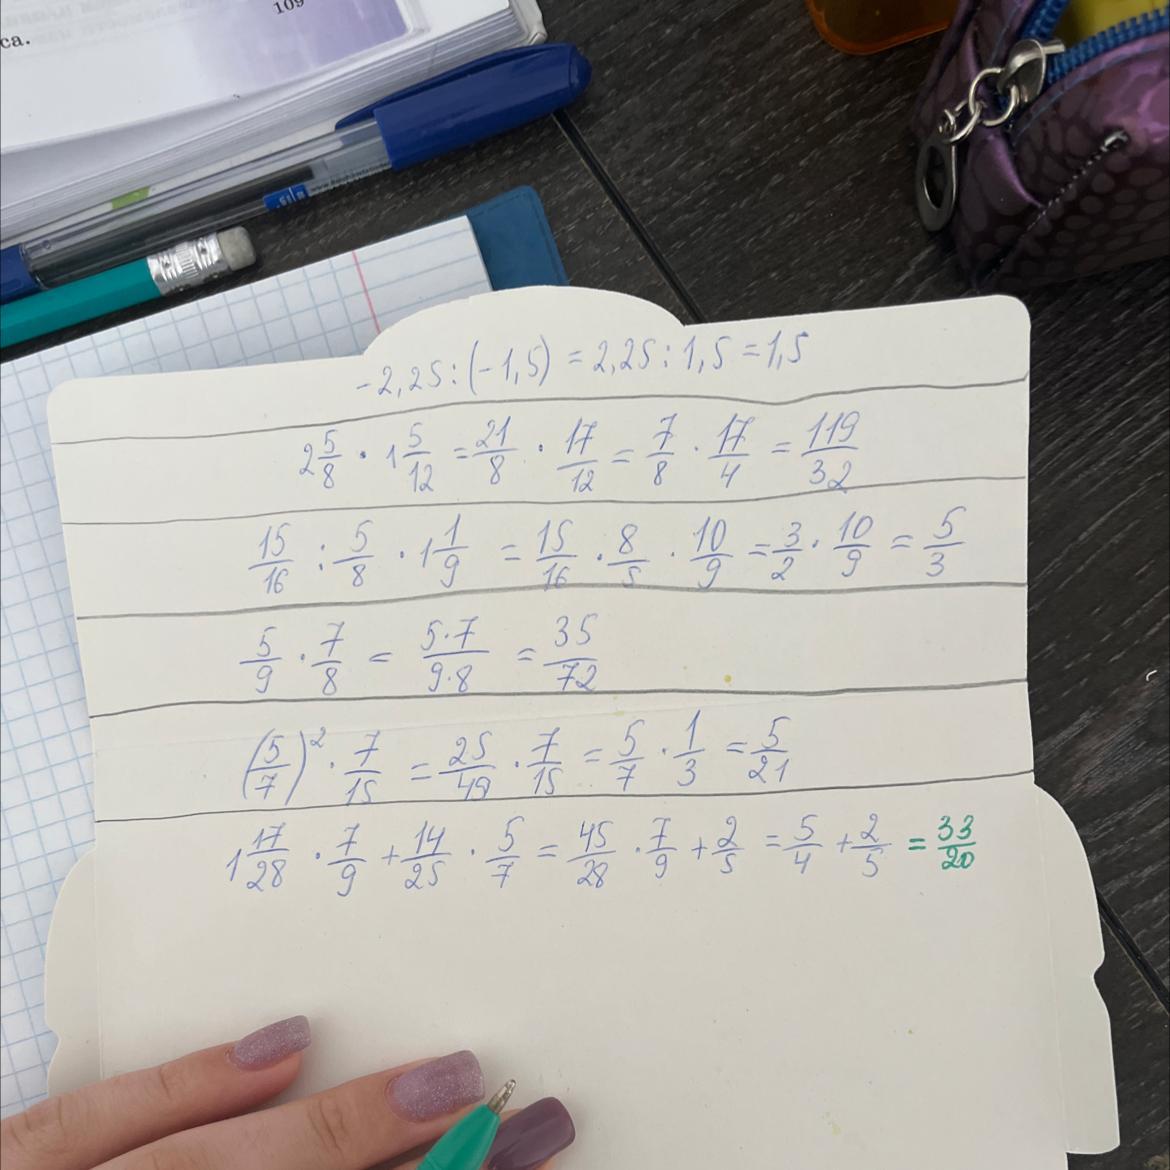 109
са.
-2,25 : (-1,5) = 2,25 : 1,5 = 1,5
2 5/8 · 1 5/12 = 21/8 · 17/12 = 7/8 · 17/4 = 119/32
15/16 : 5/8 · 1 1/9 = 15/16 · 8/5 · 10/9 = 3/2 · 10/9 = 5/3
5/9 · 7/8 = 5·7/9·8 = 35/72
(5/7)² · 7/15 = 25/49 · 7/15 = 5/7 · 1/3 = 5/21
1 17/28 · 7/9 + 14/25 · 5/7 = 45/28 · 7/9 + 2/5 = 5/4 + 2/5 = 33/20